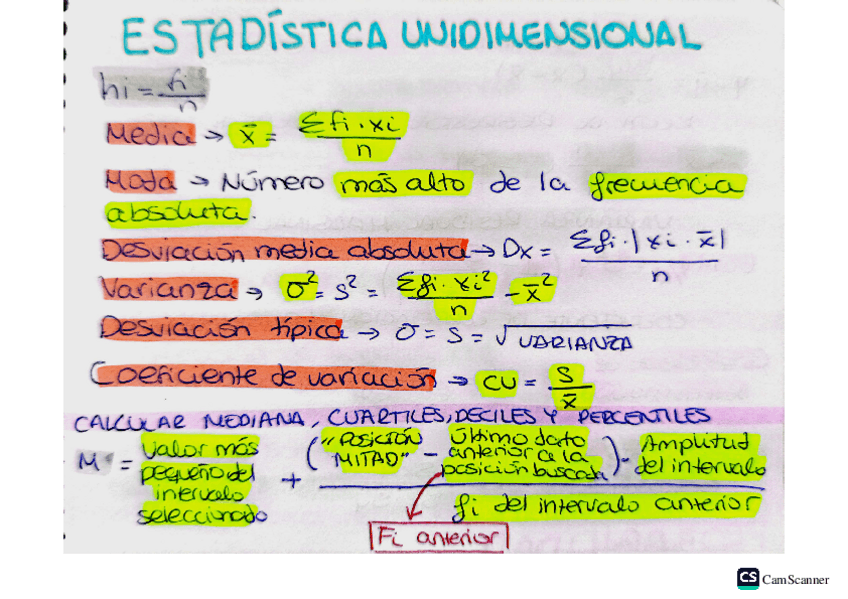 ESTADÍSTICA UNIDIMENSIONAL
hi = fi/n
Media → x̄ = Σfi·xi/n
Moda → Número más alto de la frecuencia
absoluta.
Desviación media absoluta → Dx = Σfi·|xi·x̄|/n
Varianza → σ² = S² = Σfi·xi²/n - x̄²
Desviación típica → σ = S = √VARIANZA
Coeficiente de variación → CV = S/x̄
CALCULAR MEDIANA, CUARTILES, DECILES Y PERCENTILES
M = Valor más pequeño del intervalo seleccionado + ("POSICIÓN MITAD" - Último dato anterior a la posición buscada) · Amplitud del intervalo / fi del intervalo anterior
Fi anterior
CS CamScanner